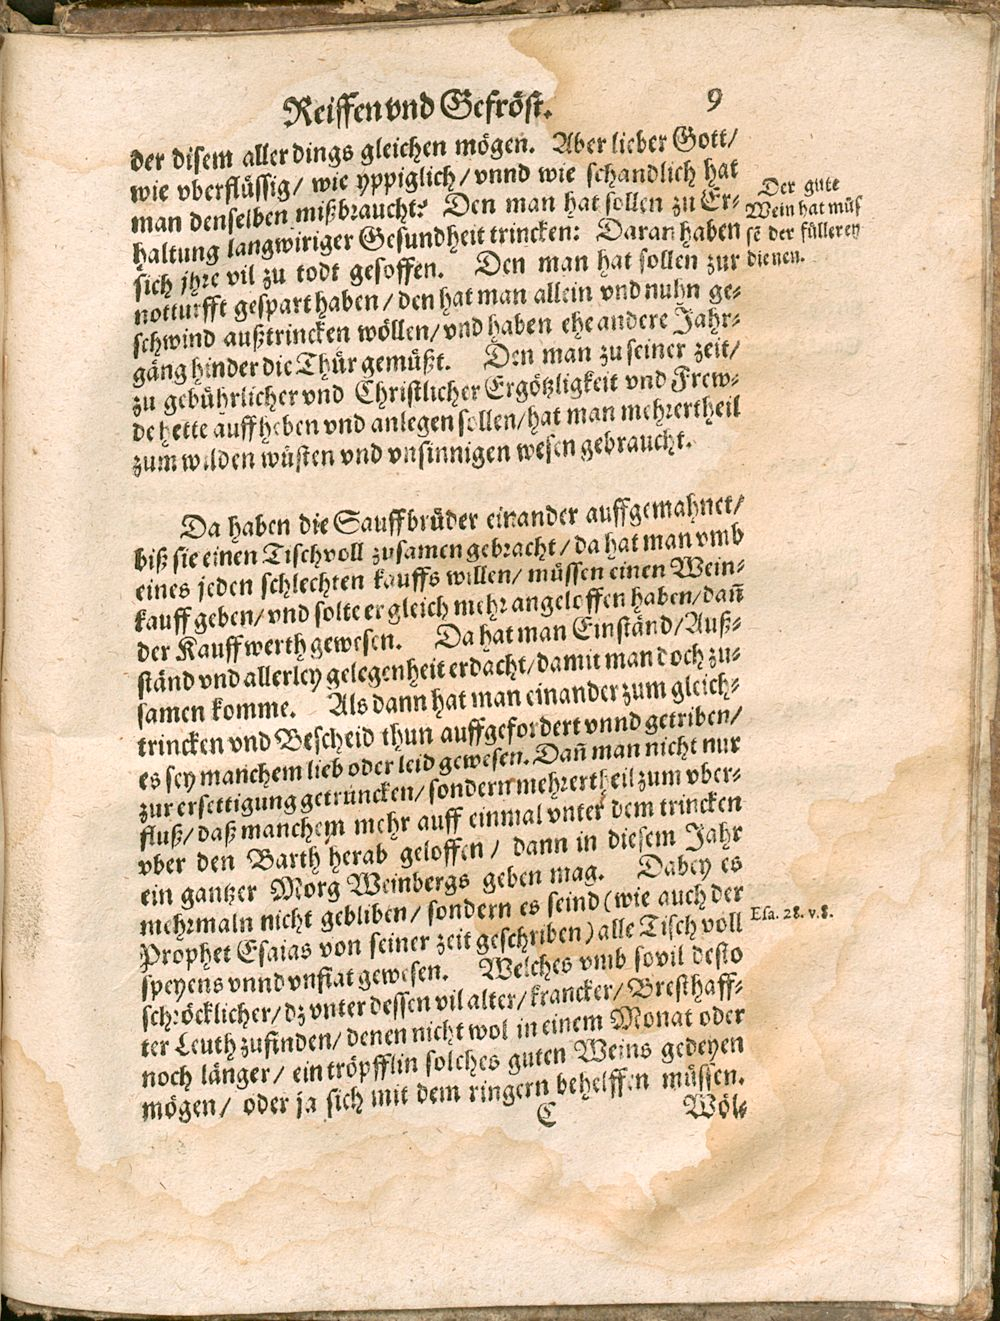 Reiffen vnd Gefröst. 9
der disem aller dings gleichen mögen. Aber lieber Gott/
wie vberflüssig/ wie yppiglich/ vnnd wie schandlich hat
man denselben mißbraucht? Den man hat sollen zu Er-
haltung langwiriger Gesundheit trincken: Daran haben
sich jhre vil zu todt gesoffen. Den man hat sollen zur
notturfft gespart haben/ den hat man allein vnd nuhn ge-
schwind außtrincken wöllen/ vnd haben ehe andere Jahr-
gäng hinder die Thür gemüßt. Den man zu seiner zeit/
zu gebührlicher vnd Christlicher Ergötzligkeit vnd Frew-
de hette auffheben vnd anlegen sollen/ hat man mehrertheil
zum wilden wüsten vnd vnsinnigen wesen gebraucht.
Der gute
Wein hat müs
sẽ der füllerey
dienen.
Da haben die Sauffbrüder einander auffgemahnet/
biß sie einen Tischvoll zusamen gebracht/ da hat man vmb
eines jeden schlechten kauffs willen/ müssen einen Wein-
kauff geben/ vnd solte er gleich mehr angeloffen haben/ dañ
der Kauff werth gewesen. Da hat man Einständ/ Auß-
ständ vnd allerley gelegenheit erdacht/ damit man doch zu-
samen komme. Als dann hat man einander zum gleich-
trincken vnd Bescheid thun auffgefordert vnnd getriben/
es sey manchem lieb oder leid gewesen. Dañ man nicht nur
zur ersettigung getruncken/ sondern mehrertheil zum vber-
fluß/ daß manchem mehr auff einmal vnter dem trincken
vber den Barth herab geloffen/ dann in diesem Jahr
ein gantzer Morg Weinbergs geben mag. Dabey es
mehrmaln nicht gebliben/ sondern es seind (wie auch der
Prophet Esaias von seiner zeit geschriben) alle Tisch voll
speyens vnnd vnflat gewesen. Welches vmb sovil desto
schröcklicher/ dz vnter dessen vil alter/ krancker/ Bresthaff-
ter Leuth zufinden/ denen nicht wol in einem Monat oder
noch länger/ ein tröpfflin solches guten Weins gedeyen
mögen/ oder ja sich mit dem ringern behelffen müssen.
Esa. 28. v. 8.
C Wöl-